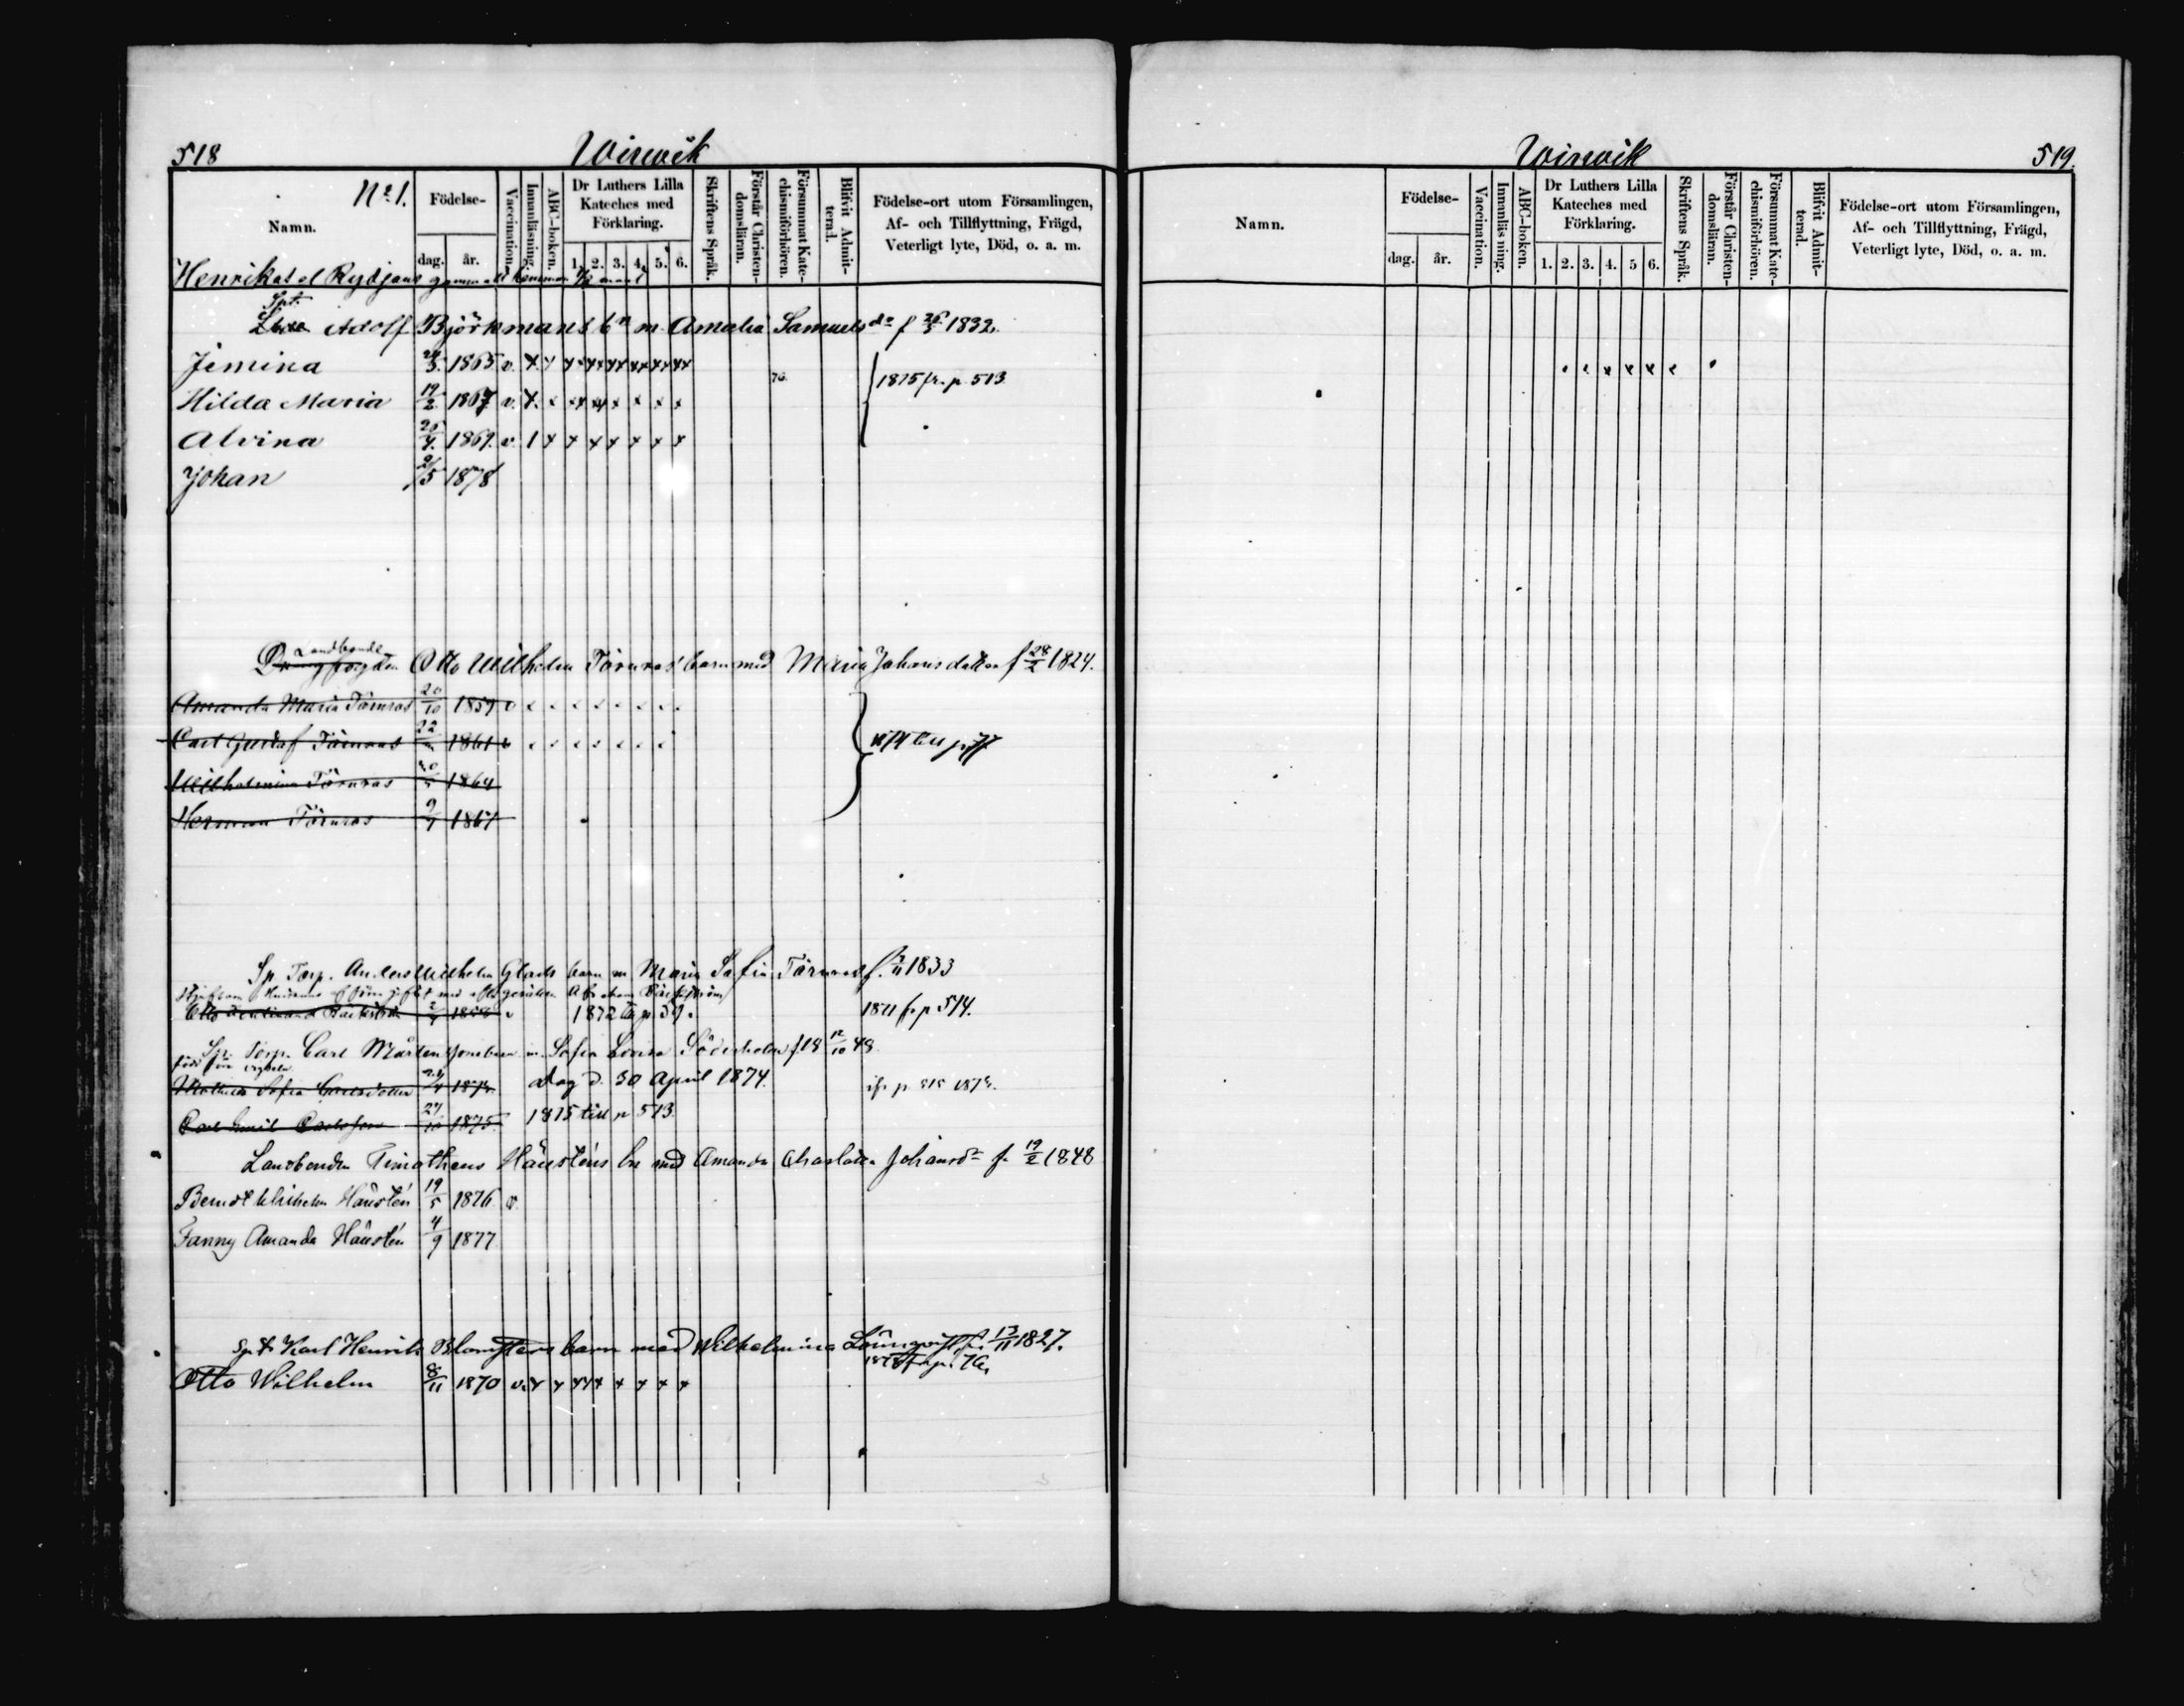 518
Wirwik
No 1.
Namn.
Födelse-
dag.
år.
Vaccination.
Innanläsning.
ABC-boken.
Dr Luthers Lilla
Kateches med
Förklaring.
1. 2. 3. 4. 5. 6.
Skriftens Språk.
Förstår Christen-
domsläran.
Försummat Kate-
chismiförhören.
Blifvit Admit-
terad.
Födelse-ort utom Församlingen,
Af- och Tillflyttning, Frägd,
Veterligt lyte, Död, o. a. m.
Henrikst el Rydjans hemman 1/2 mant
Spt.
Adolf Björkmans bn m Amalia Samuelsdr f 26/3 1832.
Jemina 1865 v.
Hilda Maria 19/2 1867 v.
76.
1875 fr. p. 513
Alvina 20/4 1869. v
Johan 2/5 1878
Landbonde
Drängfogden Otto Wilhelm Törnroos barn med Maria Johans dotter f 28/2 1824.
Amanda Maria Törnroos 20/10 1859 v
Carl Gustaf Törnroos 1861 v
1874 till p 77
Wilhelmina Törnroos 1864
Herman Törnroos 1867
Sp. Torp. Anders Wilhelm Glads barn m Maria Sofia Törnroos f. 1833
1858 v 1872 till p. 39. 1871 fr p 514.
Sp. Torp. Carl Mårtenssons barn m. Sofia Lovisa Söderholm f 18 12/10 48
född före vigseln
Mathilda Sofia Carlsdotter 1872. dog d. 30 April 1874. ifr p 515 1873.
Carl Emil Carlsson 27/10 1875. 1875 till p 513
Landbonden Timotheus Häusténs bn med Amanda Charlotta Johansdr f. 19/2 1848
Berndt Wilhelm Häustén 19/5 1876 v.
Fanny Amanda Häustén 4/9 1877
Sp. t. Karl Henrik Blomsters barn med Wilhelmina Lönnqvist f. 13/11 1827.
Otto Wilhelm 8/11 1870 v.
Wirwik
519.
Namn.
Födelse-
dag.
år.
Vaccination.
Innanläs ning.
ABC-boken.
Dr Luthers Lilla
Kateches med
Förklaring.
1. 2. 3. 4. 5 6.
Skriftens Språk.
Förstår Christen-
domsläran.
Försummat Kate-
chismiförhören.
Blifvit Admit-
terad.
Födelse-ort utom Församlingen,
Af- och Tillflyttning, Frägd,
Veterligt lyte, Död, o. a. m.